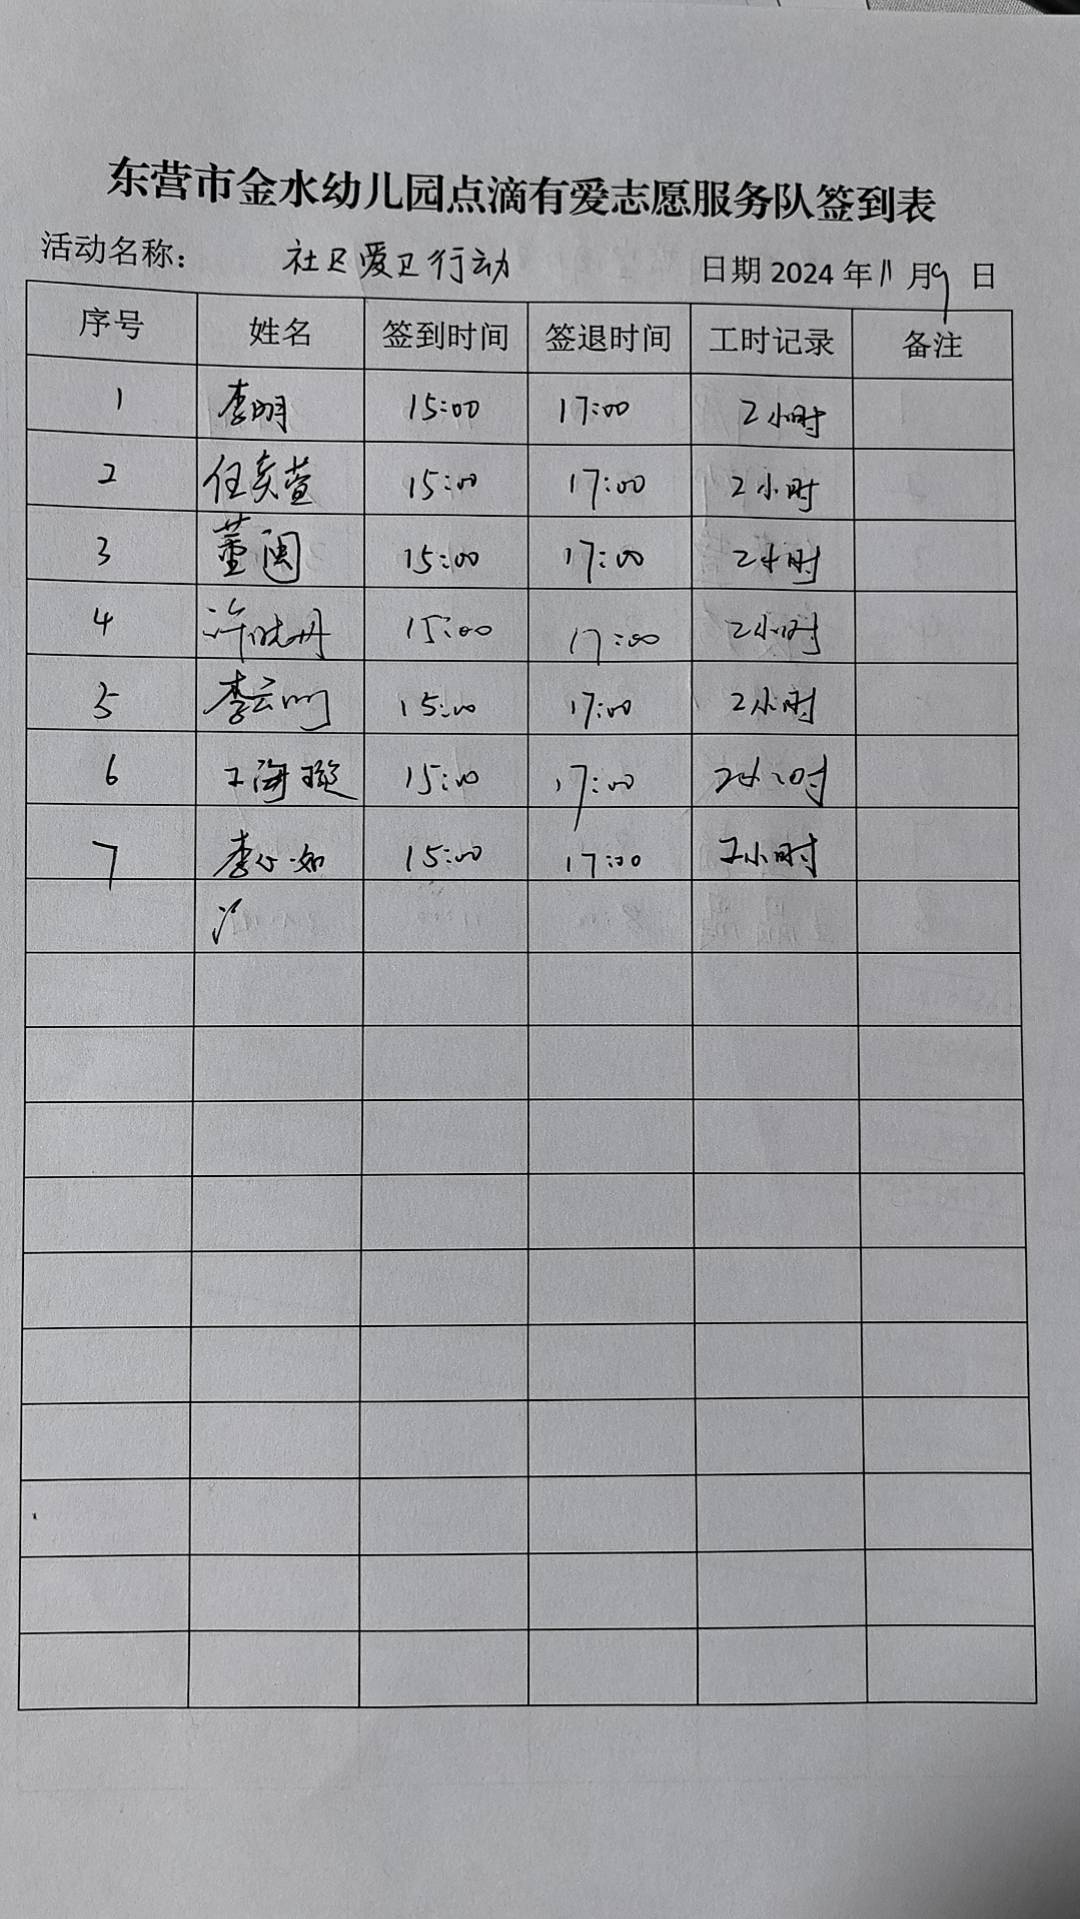 东营市金水幼儿园点滴有爱志愿服务队签到表
活动名称： 社区爱卫行动 日期 2024 年 11 月 9 日
序号 姓名 签到时间 签退时间 工时记录 备注
1 李明 15:00 17:00 2小时
2 任奕萱 15:00 17:00 2小时
3 董闽 15:00 17:00 2小时
4 许晓丹 15:00 17:00 2小时
5 李云 15:00 17:00 2小时
6 海璇 15:00 17:00 2小时
7 李 如 15:00 17:00 2小时